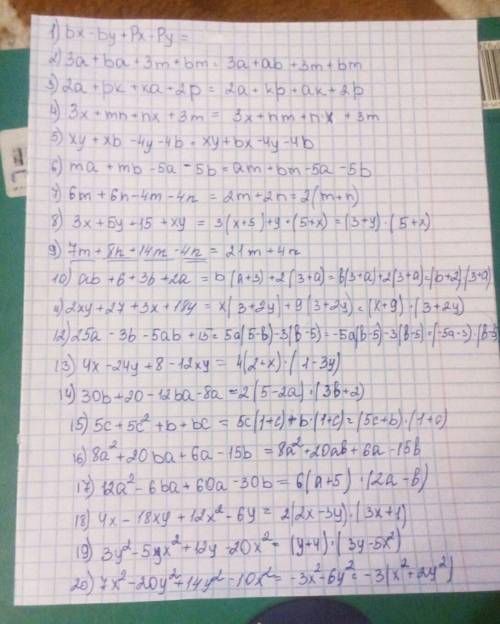 1) bx - by + Px - Py =
2) 3a + ba + 3m + bm = 3a + ab + 3m + bm
3) 2a + pk + ka + 2p = 2a + kp + ak + 2p
4) 3x + mn + nx + 3m = 3x + nm + nx + 3m
5) xy + xb - 4y - 4b = xy + bx - 4y - 4b
6) ma + mb - 5a - 5b = am + bm - 5a - 5b
7) 6m + 6n - 4m - 4n = 2m + 2n = 2(m+n)
8) 3x + 5y + 15 + xy = 3(x+5) + y·(5+x) = (3+y)·(5+x)
9) 7m + 8n + 14m - 4n = 21m + 4n
10) ab + 6 + 3b + 2a = b(a+3) + 2(3+a) = b(3+a) + 2(3+a) = (b+2)·(3+a)
11) 2xy + 27 + 3x + 18y = x(3+2y) + 9(3+2y) = (x+9)·(3+2y)
12) 25a - 3b - 5ab + 15 = 5a(5-b) - 3(b-5) = -5a(b-5) - 3(b-5) = (-5a-3)·(b-5)
13) 4x - 24y + 8 - 12xy = 4(2+x)·(1-3y)
14) 30b + 20 - 12ba - 8a = 2(5-2a)·(3b+2)
15) 5c + 5c² + b + bc = 5c(1+c) + b·(1+c) = (5c+b)·(1+c)
16) 8a² + 20ba + 6a - 15b = 8a² + 20ab + 6a - 15b
17) 12a² - 6ba + 60a - 30b = 6(a+5)·(2a-b)
18) 4x - 18xy + 12x² - 6y = 2(2x-3y)·(3x+1)
19) 3y² - 5yx² + 12y - 20x² = (y+4)·(3y-5x²)
20) 7x² - 20y² + 14y² - 10x² = -3x² - 6y² = -3(x²+2y²)